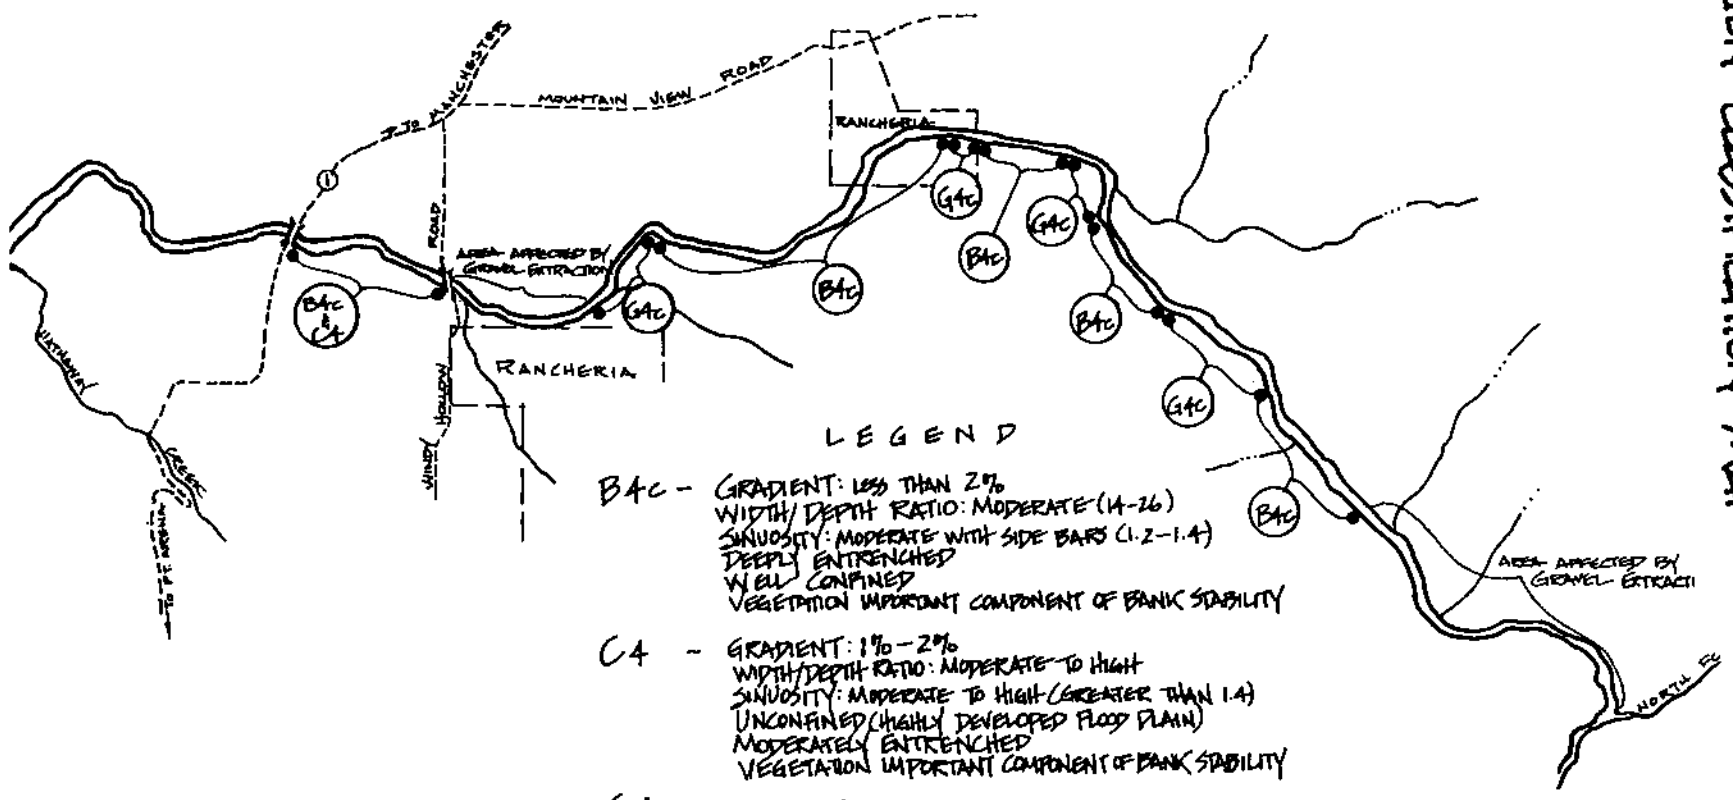 TO MANCHESTER
MOUNTAIN VIEW ROAD
RANCHERIA
1
ROAD
AREA AFFECTED BY
GRAVEL EXTRACTION
G4c
B4c
G4c
B4c
B4c
&
C4
G4c
B4c
B4c
G4c
B4c
RANCHERIA
HATHAWAY
CREEK
WINDY HOLLOW
TO PT. ARENA
AREA AFFECTED BY
GRAVEL EXTRACTI
NORTH
LEGEND
B4c - GRADIENT: LESS THAN 2%
WIDTH/DEPTH RATIO: MODERATE (14-26)
SINUOSITY: MODERATE WITH SIDE BARS (1.2-1.4)
DEEPLY ENTRENCHED
WELL CONFINED
VEGETATION IMPORTANT COMPONENT OF BANK STABILITY
C4 - GRADIENT: 1%-2%
WIDTH/DEPTH RATIO: MODERATE TO HIGH
SINUOSITY: MODERATE TO HIGH (GREATER THAN 1.4)
UNCONFINED (HIGHLY DEVELOPED FLOOD PLAIN)
MODERATELY ENTRENCHED
VEGETATION IMPORTANT COMPONENT OF BANK STABILITY